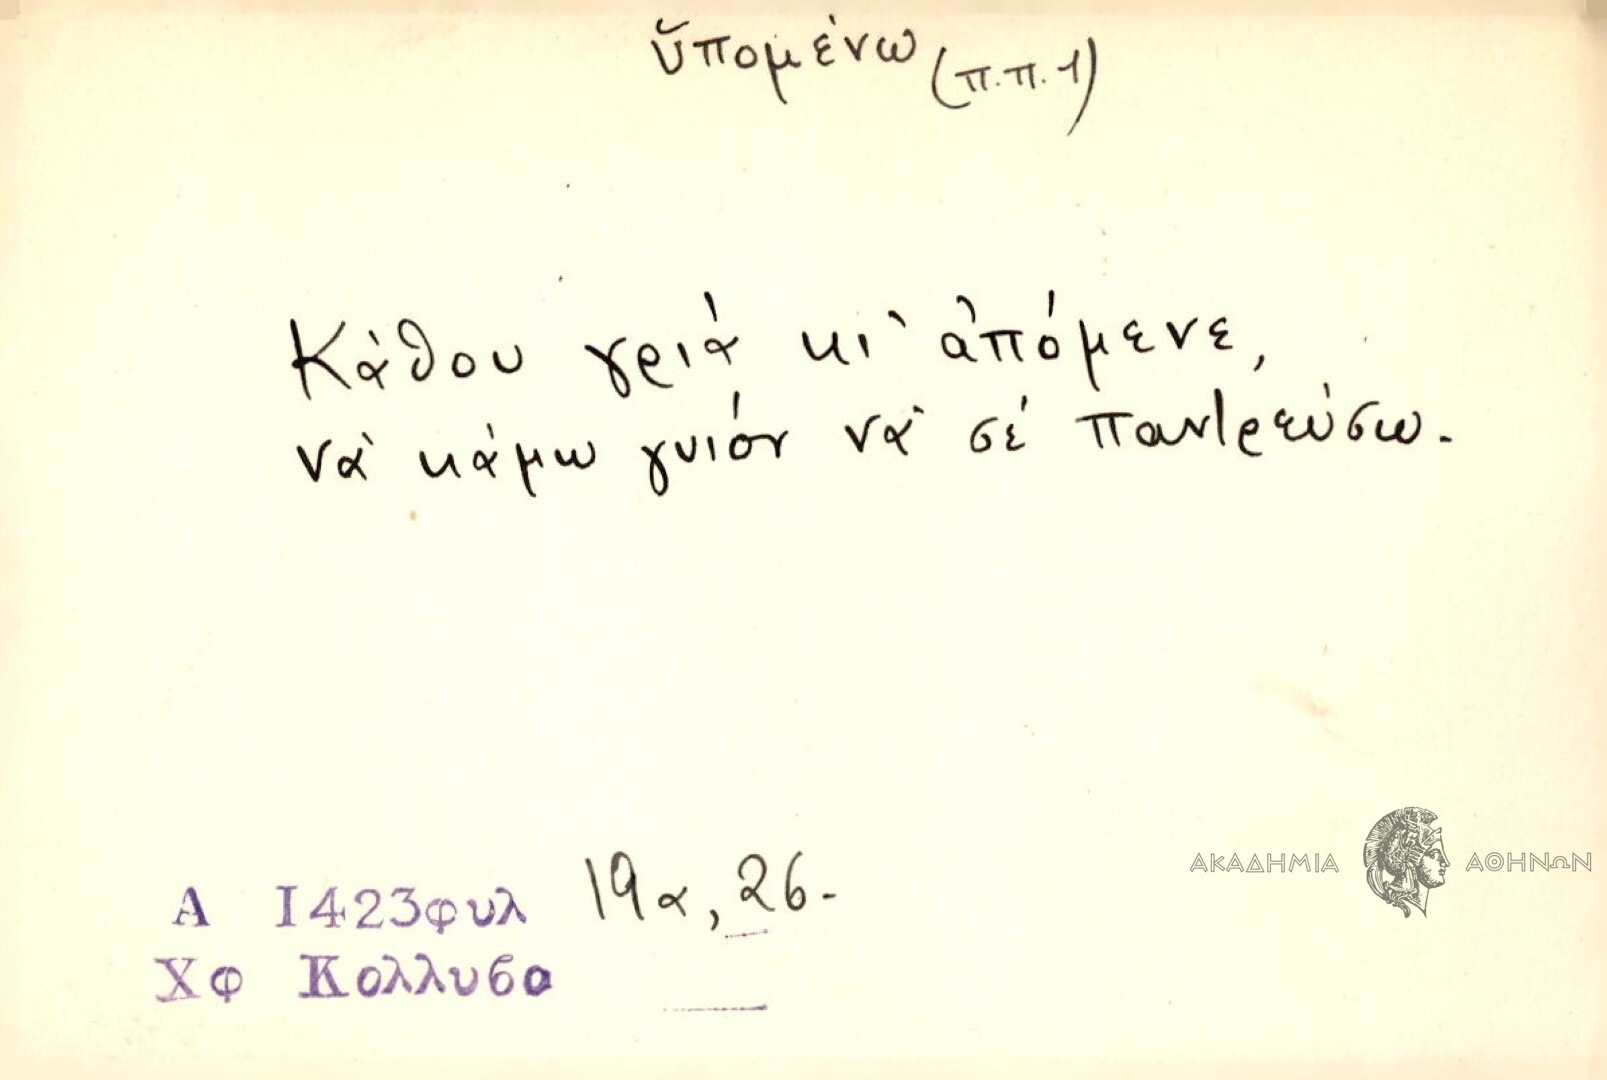 ὑπομένω (π.π. 1)
Κάθου γριά κι' ἀπόμενε,
νά κάμω γυιόν νά σέ παντρεύσω.
Α 1423φυλ 19α, 26.-
Χφ Κολλυβα
ΑΚΑΔΗΜΙΑ ΑΘΗΝΩΝ